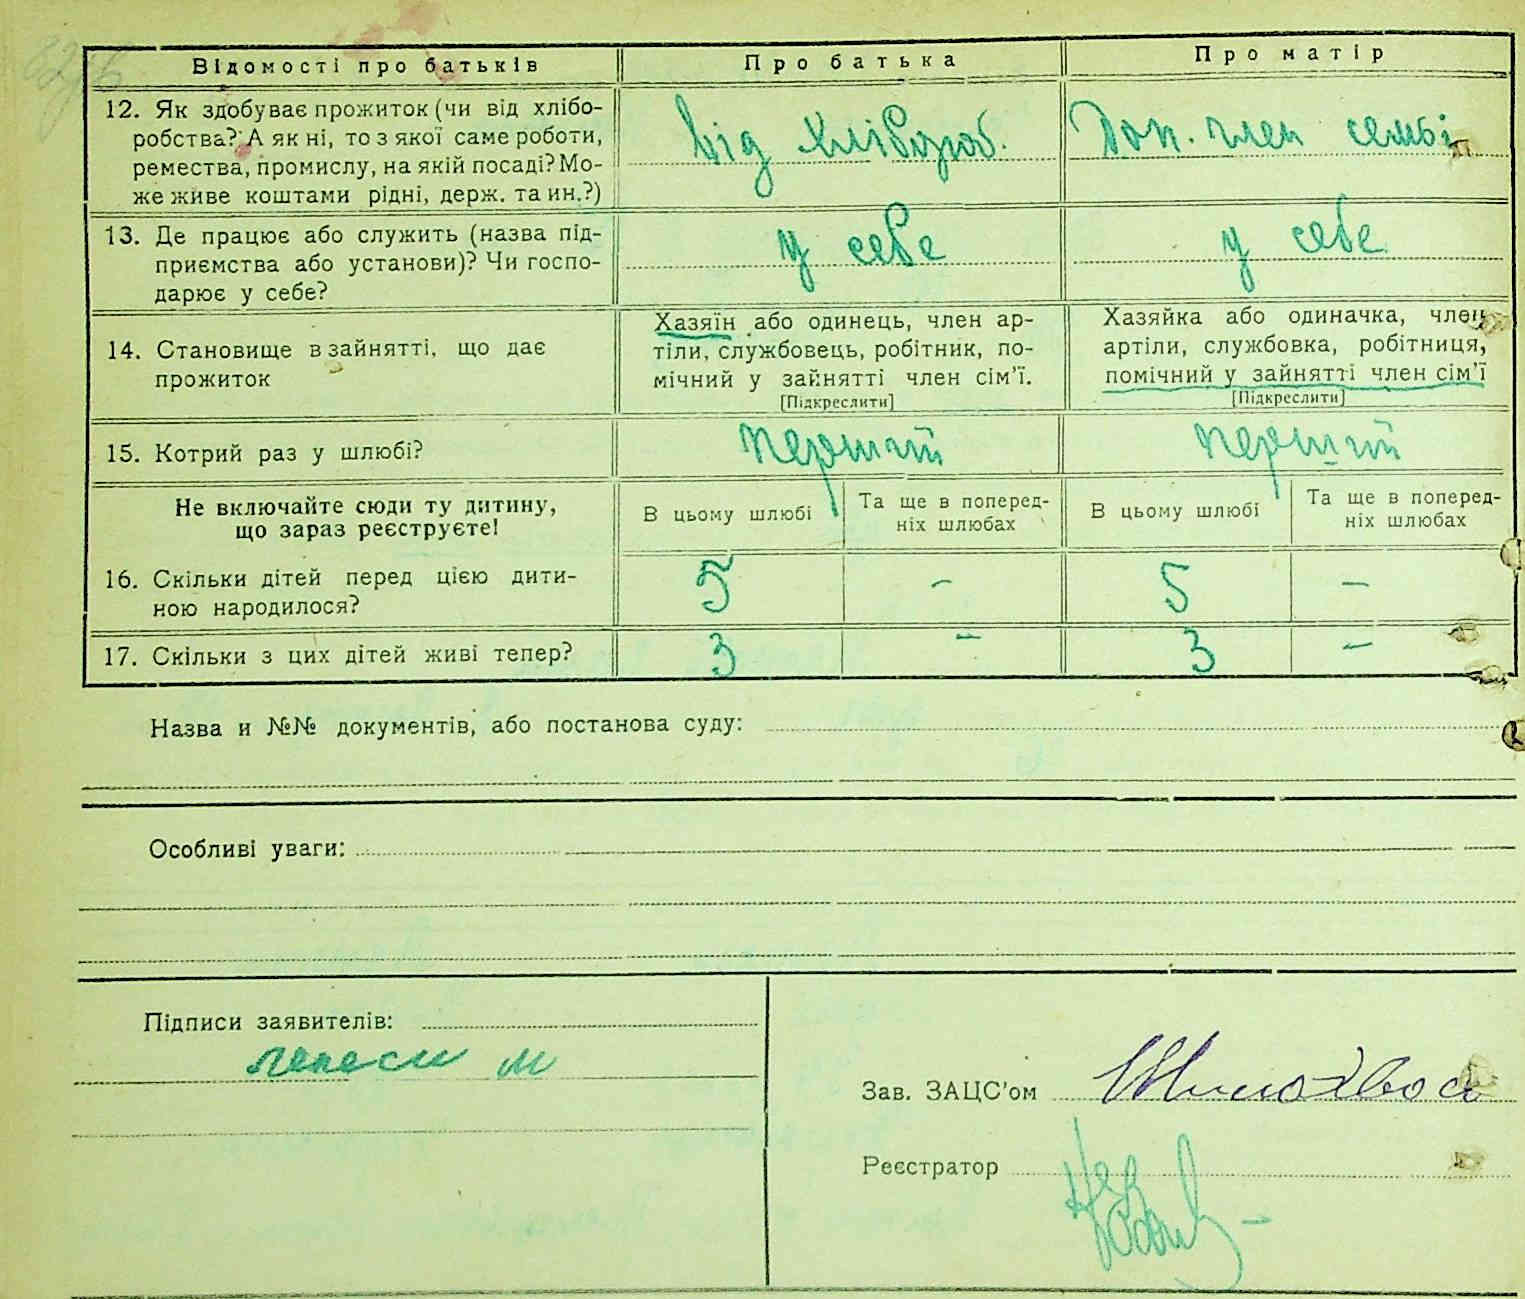 Відомості про батьків
Про батька
Про матір
12. Як здобуває прожиток (чи від хлібо-
робства? А як ні, то з якої саме роботи,
ремества, промислу, на якій посаді? Мо-
же живе коштами рідні, держ. та ин.?)
від хлібороб.
Доп. член семьї
13. Де працює або служить (назва під-
приємства або установи)? Чи госпо-
дарює у себе?
у себе
у себе
14. Становище в зайнятті, що дає
прожиток
Хазяїн або одинець, член ар-
тіли, службовець, робітник, по-
мічний у зайнятті член сім'ї.
[Підкреслити]
Хазяйка або одиначка, член
артіли, службовка, робітниця,
помічний у зайнятті член сім'ї
[Підкреслити]
15. Котрий раз у шлюбі?
перший
перший
Не включайте сюди ту дитину,
що зараз реєструєте!
В цьому шлюбі
Та ще в поперед-
ніх шлюбах
В цьому шлюбі
Та ще в поперед-
ніх шлюбах
16. Скільки дітей перед цією дити-
ною народилося?
5 - 5 -
17. Скільки з цих дітей живі тепер?
3 - 3 -
Назва и №№ документів, або постанова суду:
Особливі уваги:
Підписи заявителів:
Зав. ЗАЦС'ом
Реєстратор